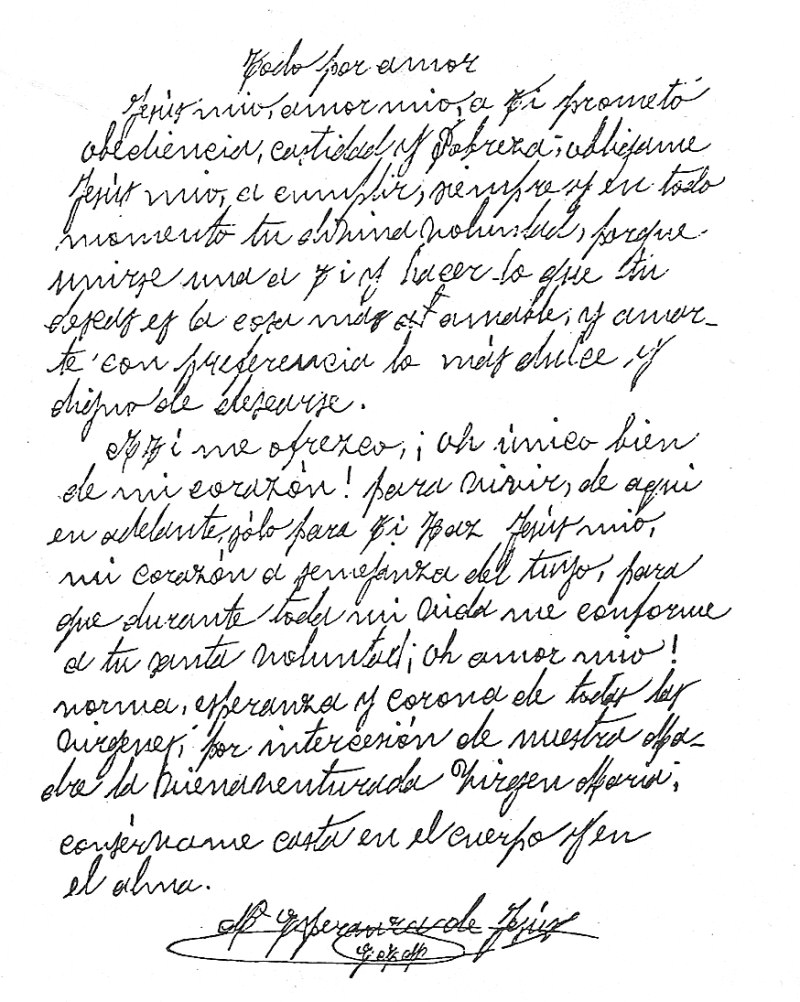 Todo por amor
Jesús mio, amor mio, a Ti prometo
obediencia, castidad y Pobreza; obligame
Jesús mio, a cumplir, siempre y en todo
momento tu divina voluntad, porque
unirse una a Ti y hacer lo que tu
deseas es la cosa más amable; y amar-
te con preferencia lo más dulce y
digno de desearse.
A Ti me ofrezco, ¡oh único bien
de mi corazón! para vivir, de aqui
en adelante, sólo para Ti Haz Jesús mio,
mi corazón a semejanza del tuyo, para
que durante toda mi vida me conforme
a tu santa voluntad; ¡oh amor mio!
norma, esperanza y corona de todas las
Virgenes; por intercesión de nuestra Ma-
dre la bienaventurada Virgen Maria;
consérvame casta en el cuerpo y en
el alma.
Mª Esperanza de Jesús